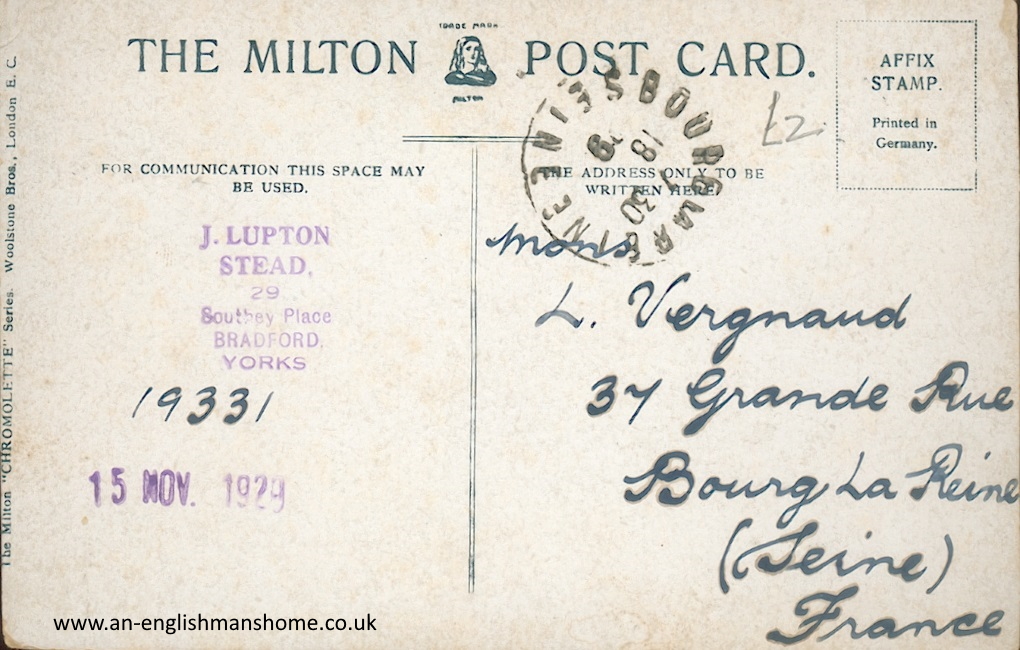 TRADE MARK
THE MILTON POST CARD.
MILTON
AFFIX
STAMP.
Printed in
Germany.
£2
The Milton "CHROMOLETTE" Series. Woolstone Bros., London E. C.
FOR COMMUNICATION THIS SPACE MAY
BE USED.
THE ADDRESS ONLY TO BE
WRITTEN HERE.
BOURG LA REINE SEINE
18
30
J. LUPTON
STEAD,
29
Southey Place
BRADFORD,
YORKS
19331
15 NOV. 1929
Mons
L. Vergnaud
37 Grande Rue
Bourg La Reine
(Seine)
France
www.an-englishmanshome.co.uk